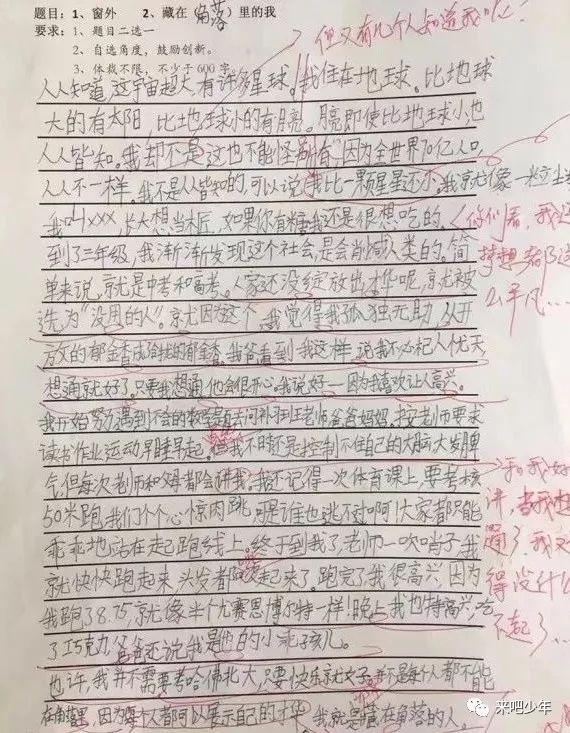 题目：1、窗外 2、藏在（角落）里的我
要求：1、题目二选一
2、自选角度，鼓励创新。
3、体裁不限，不少于600字
但又有几个人知道我呢？
人人知道，这宇宙超大有许多星球。我住在地球。比地球
大的有太阳，比地球小的有月亮。月亮即使比地球小，也
人人皆知。我却不是，这也不能怪所有，因为全世界70亿人口，
人人不一样。我不是人皆知的，可以说我比一颗星星还小，我就像一粒尘
我叫xxx，长大想当木匠，如果你有糖我还是很想吃的。
到了三年级，我渐渐发现这个社会，是会消减人类的。简
单来说，就是中考和高考。人家还没绽放出才华呢，就被
选为“没用的人”。就因为这个，我觉得我孤独无助，从开
放的郁金香成给我的郁金香。我爸看到我这样，说我不必杞人忧天，
想通就好了。只要我想通，他会很开心。我说好——因为我喜欢让人高兴。
我开始努力，遇到不会的数学题去问补习班老师爸爸妈妈。按老师要求
读书作业运动早睡早起。但我不时还是控制不住自己的大脑大发脾
气，但每次老师和父母都会讲我。我还记得一次体育课上，要考核
50米跑，我们个个心惊肉跳，可是谁也逃不过啊！大家都只能
乖乖地站在起跑线上。终于到我了，老师一吹哨子，我
就快快跑起来，头发都飘起来了。跑完了我很高兴，因为
我跑了8.75，就像半个尤赛恩博尔特一样！晚上我也特高兴，吃
了巧克力，爸爸还说我是他的小乖孩儿。
也许，我并不需要考哈佛北大，只要快乐就好了，并不是每个人都不能
在角落里，因为每个人都可以展示自己的才华，我就是藏在角落的人。
你们看，我
梦想都
么平凡…
来吧少年